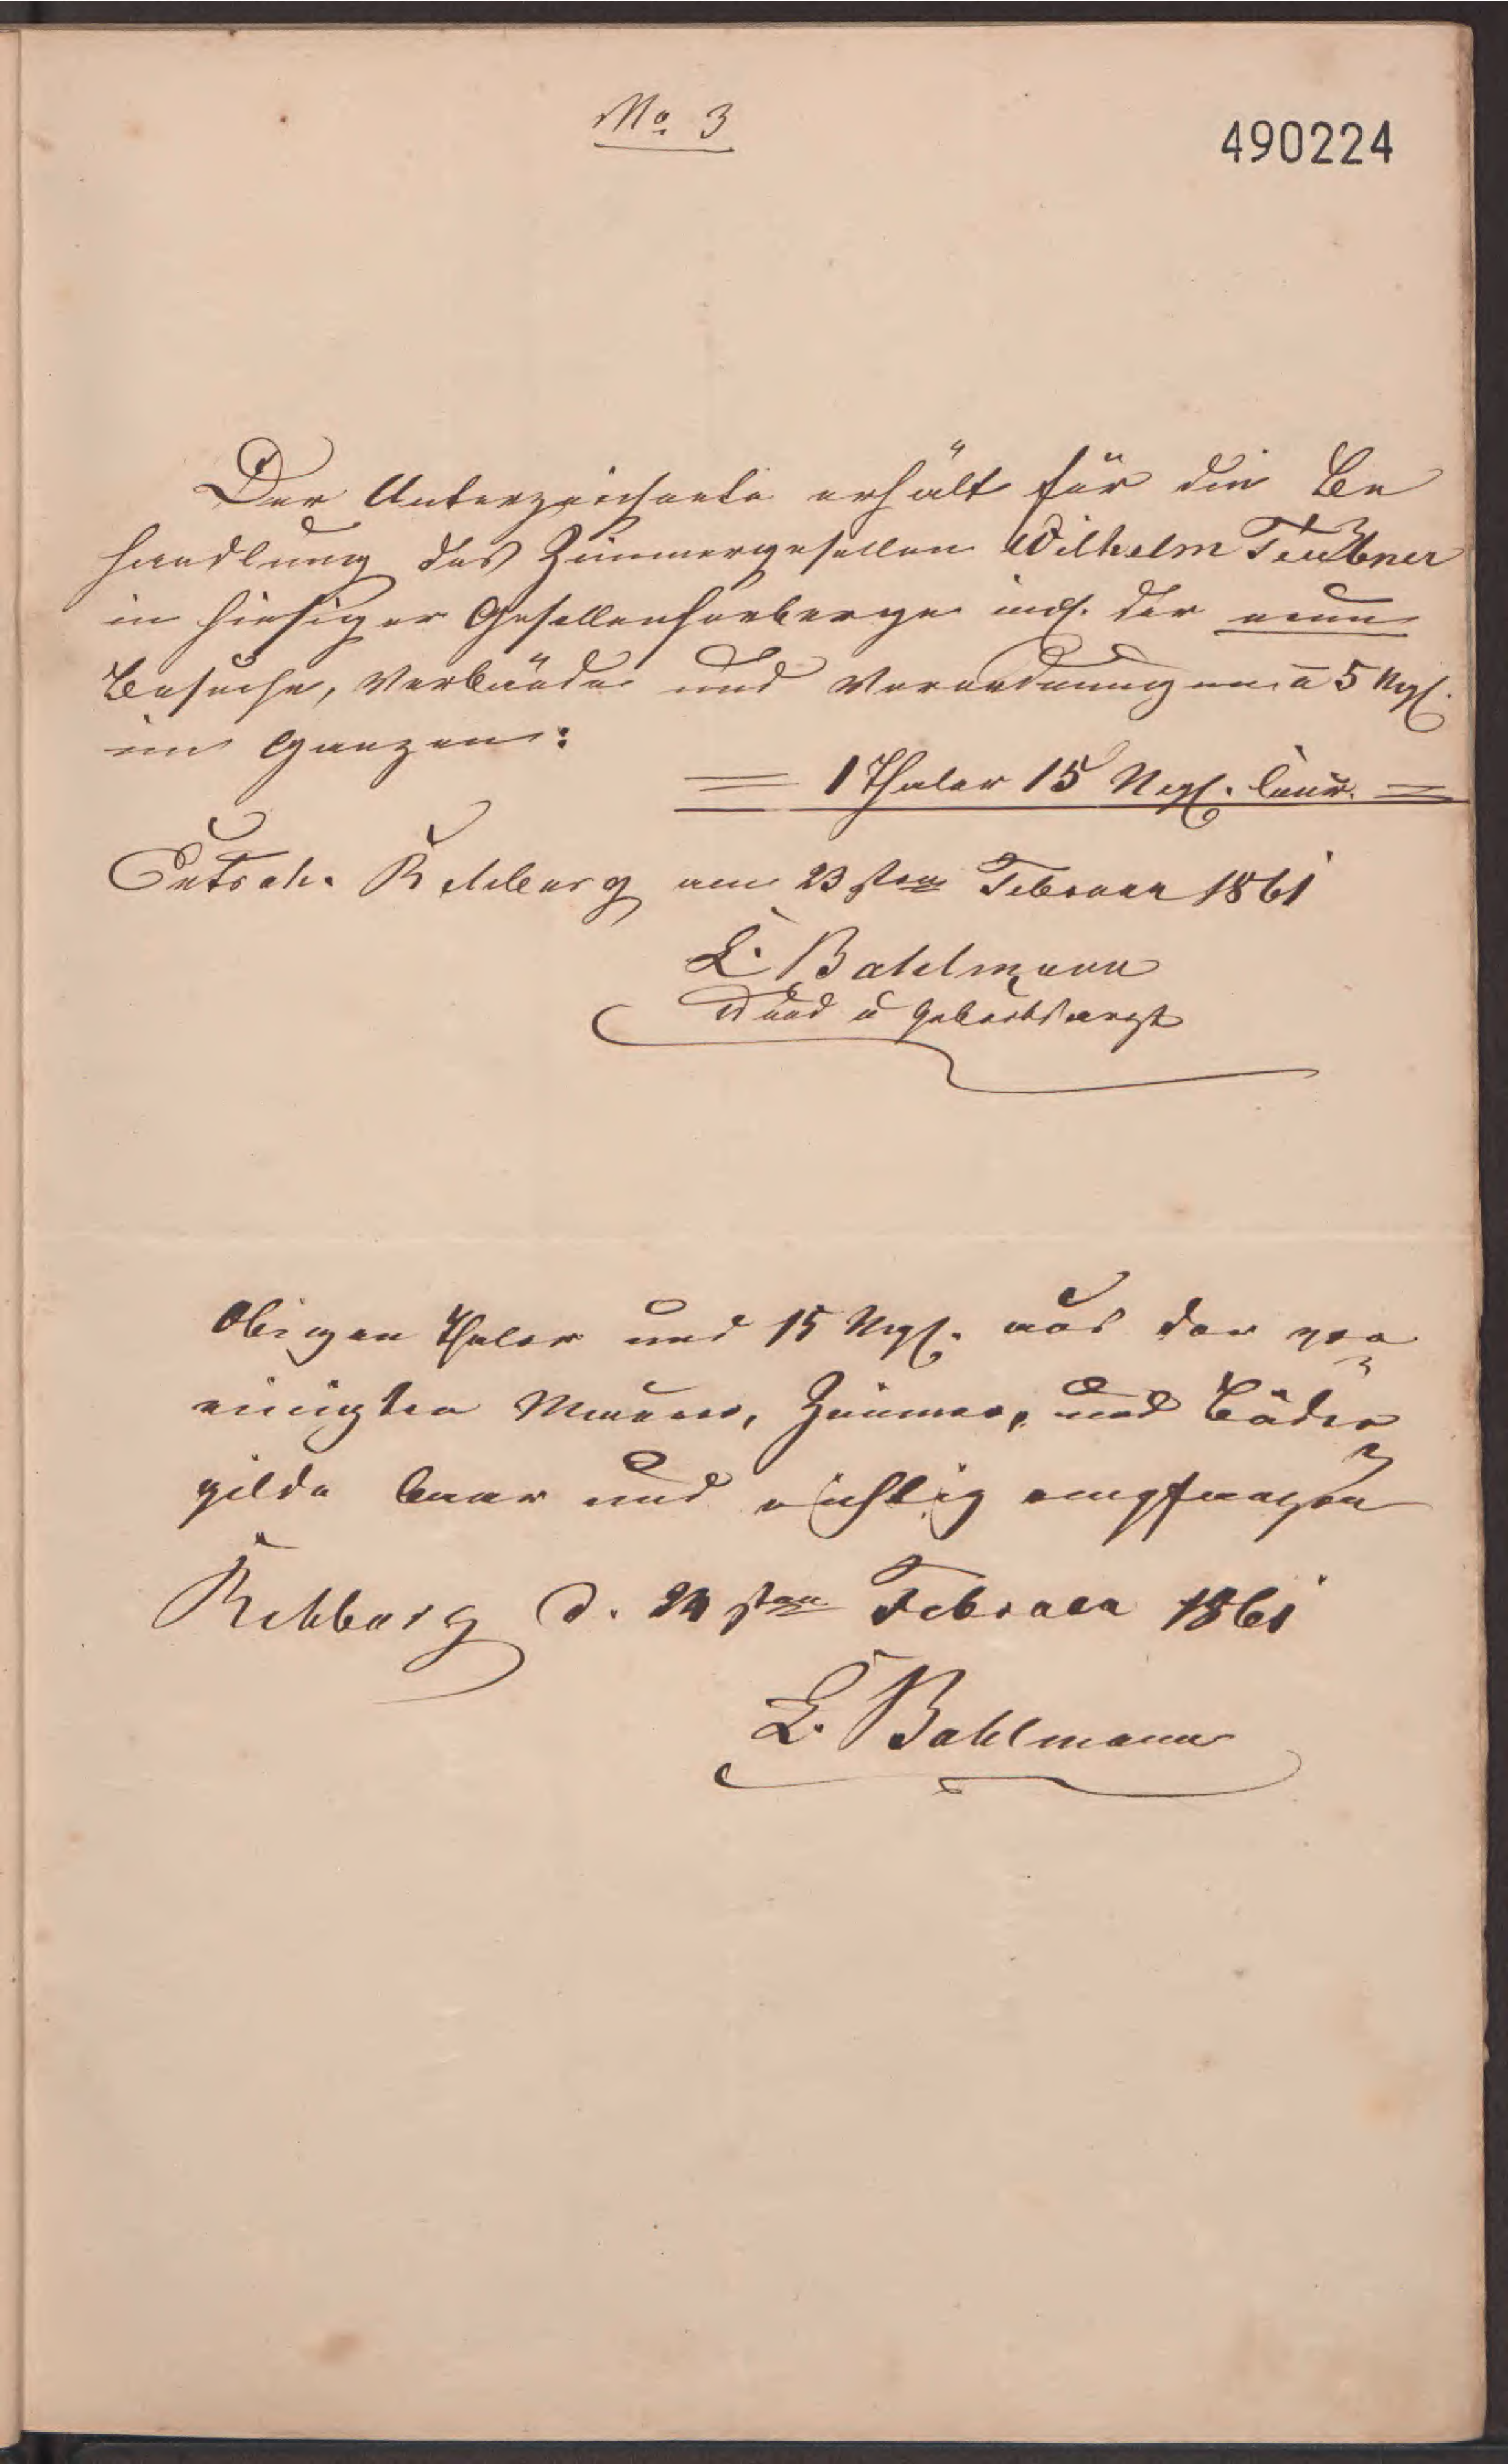 No. 3
490224
Der Unterzeichnete erhält für die Be
handlung des Zimmergesellen Wilhelm Teubner
in hiesiger Gesellenherberge incl. der neun
Besuche, Verbände und Verordnungen à 5 Ngl.
im Ganzen:
= 1 Thaler 15 Ngl. Cour. =
Rehburg am 23sten Februar 1861
L. Bahlmann
Wund u Geburtsarzt
Obigen Thaler und 15 Ngl. aus der ver
einigten Maurer, Zimmer, und
gilde baar und richtig empfangen
Rehburg d. 24sten Februar 1861
L. Bahlmann